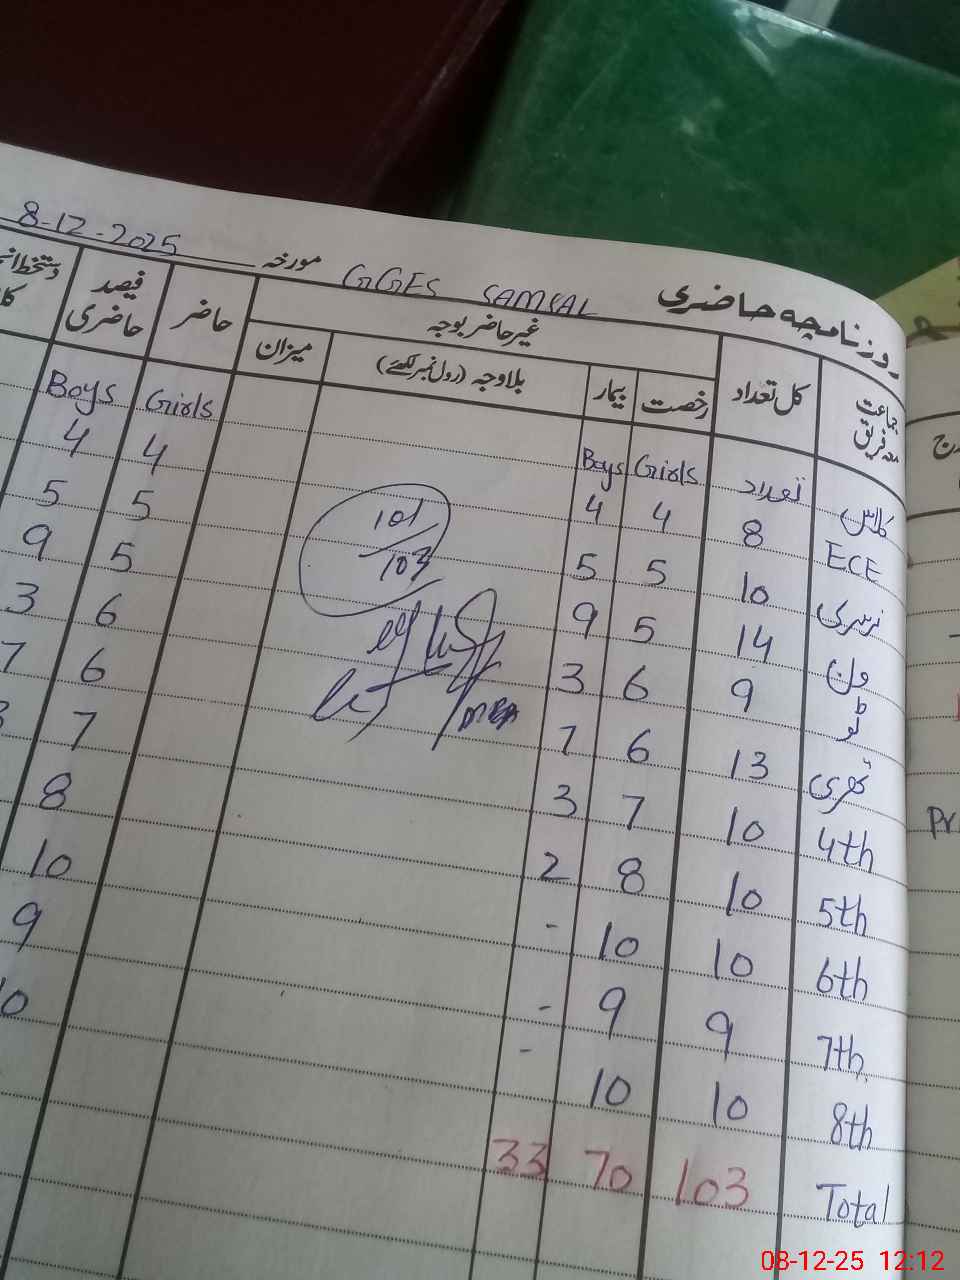 روزنامچہ حاضری GGES SAMSAL مورخہ 8-12-2025
جماعت معہ فریق کل تعداد غیر حاضر بوجہ حاضر فیصد حاضری
رخصت بیمار بلاوجہ (رول نمبر لکھئے) میزان
کلاس تعداد Girls Boys Girls Boys
ECE 8 4 4 4 4
نرسری 10 5 5 5 5
ون 14 5 9 5 9
ٹو 9 6 3 6 3
تھری 13 6 7 6 7
4th 10 7 3 7 3
5th 10 8 2 8
6th 10 10 - 10
7th 9 9 - 9
8th 10 10 - 10
Total 103 70 33
101/103
MEA
08-12-25 12:12